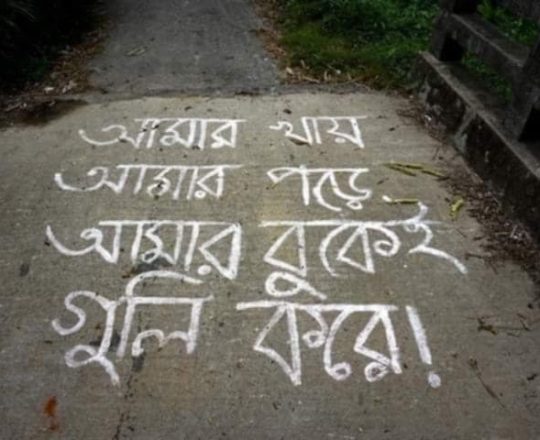 আমার খায়
আমার পড়ে
আমার বুকেই
গুলি করে!